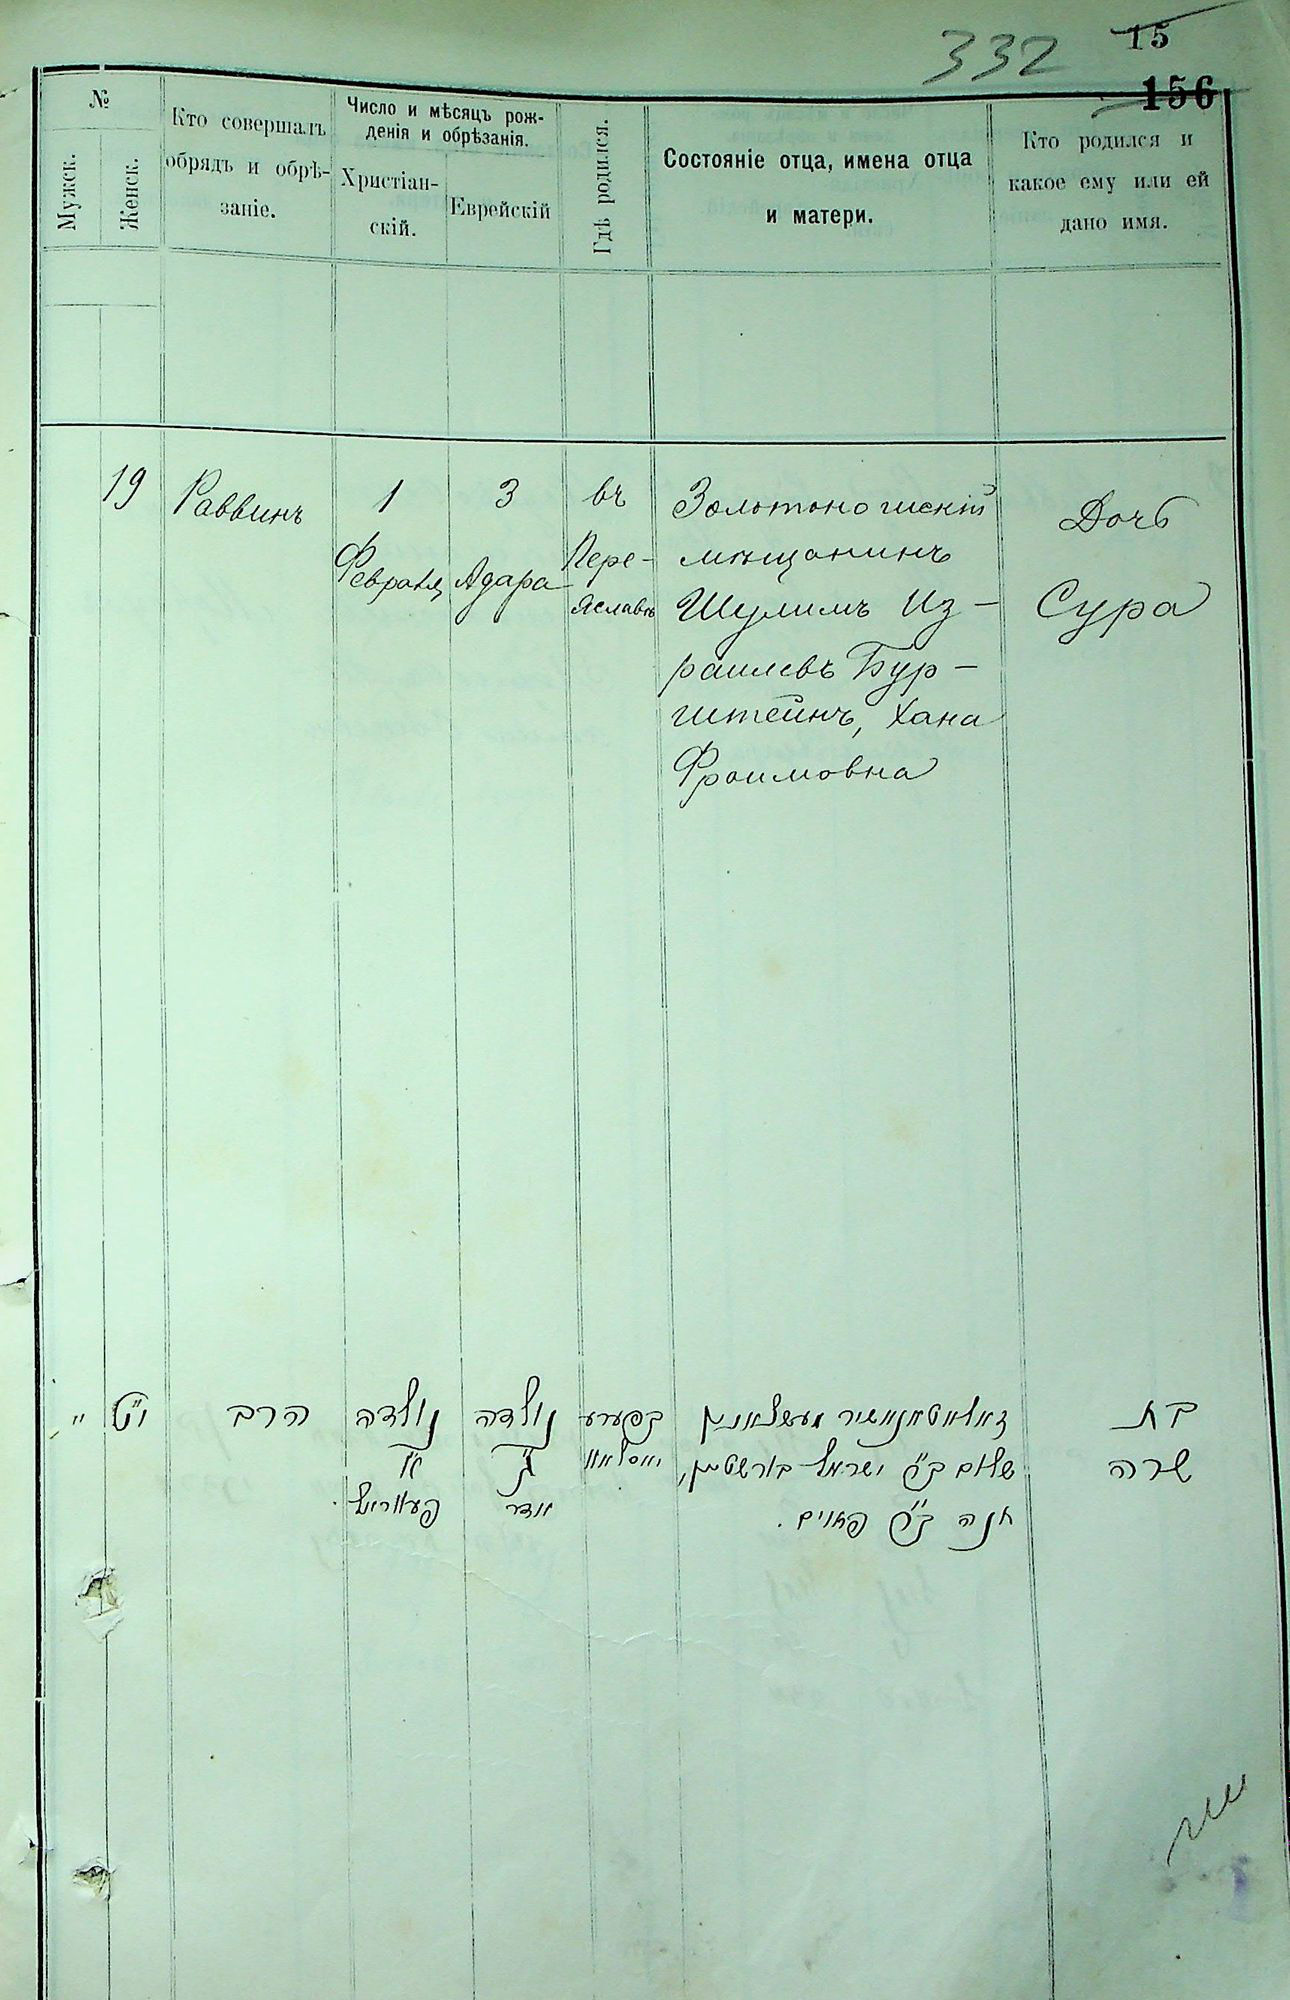 332
15
156
№
Мужск.
Женск.
Кто совершалъ
обрядъ и обрѣ-
заніе.
Число и мѣсяцъ рож-
денія и обрѣзанія.
Христіан-
скій.
Еврейскій
Гдѣ родился.
Состояніе отца, имена отца
и матери.
Кто родился и
какое ему или ей
дано имя.
19
Раввинъ
1
Февраля
3
Адара
въ
Пере-
яславѣ
Золотоношскій
мѣщанинъ
Шулимъ Из-
раилевъ Бур-
штейнъ, Хана
Фроимовна
Дочь
Сура
"
י"ט
הרב
נולדה
א'
פעווראל
נולדה
ג'
אדר
בפערע
יאסלאוו
שלום ב"ר ישראל בורשטיין,
חנה ב"ר פרוים.
בת
שרה